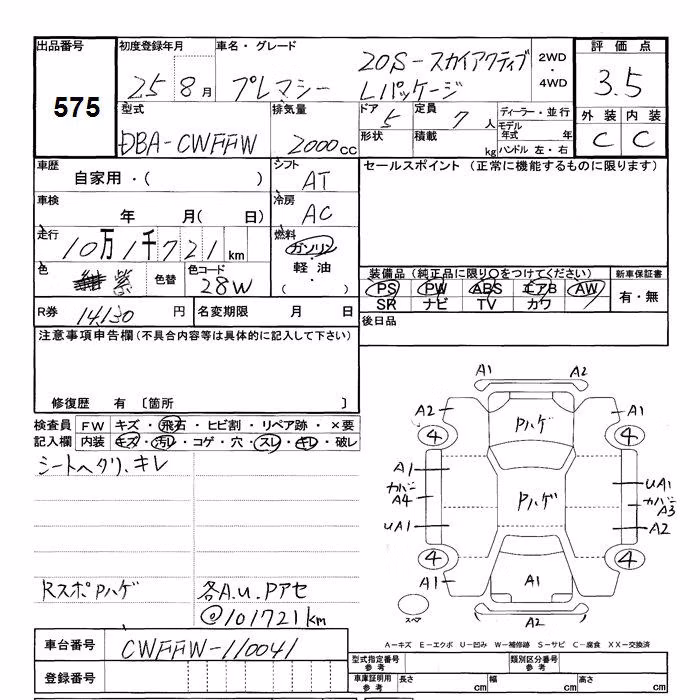 出品番号 初度登録年月 車名・グレード 評価点
575
25 8月 プレマシー 20S-スカイアクティブ Lパッケージ
2WD ・ 4WD
3.5
型式 DBA-CWFFW
排気量 2000cc
ドア 5 定員 7人
形状 積載 kg
ディーラー・並行
モデル年式 年
ハンドル 左・右
外装 内装
C C
車歴 自家用・( )
シフト AT
セールスポイント (正常に機能するものに限ります)
車検 年 月( 日)
冷房 AC
走行 10万1千721km
燃料 ガソリン・軽油・( )
色 紫 色替 色コード 28W
装備品 (純正品に限り○をつけてください) 新車保証書
PS PW ABS エアB AW 有・無
SR ナビ TV カワ
R券 14,130円 名変期限 月 日
後日品
注意事項申告欄 (不具合内容等は具体的に記入して下さい)
修復歴 有 〔箇所 〕
検査員記入欄
FW キズ・飛石・ヒビ割・リペア跡・×要
内装 キズ・汚レ・コゲ・穴・スレ・キレ・破レ
シートヘタリ、キレ
RスポPハゲ 各A.U.Pアセ
@101721km
A1 A2
A2 A1
Pハゲ
4 4
A1 UA1
カバーA4 Pハゲ カバーA3
UA1 A2
4 4
A1 A1 A1
スペア A2
A-キズ E-エクボ U-凹み W-補修跡 S-サビ C-腐食 XX-交換済
車台番号 CWFFW-110041
型式指定番号 参考 類別区分番号 参考
登録番号
車庫証明用 参考 長さ cm 幅 cm 高さ cm